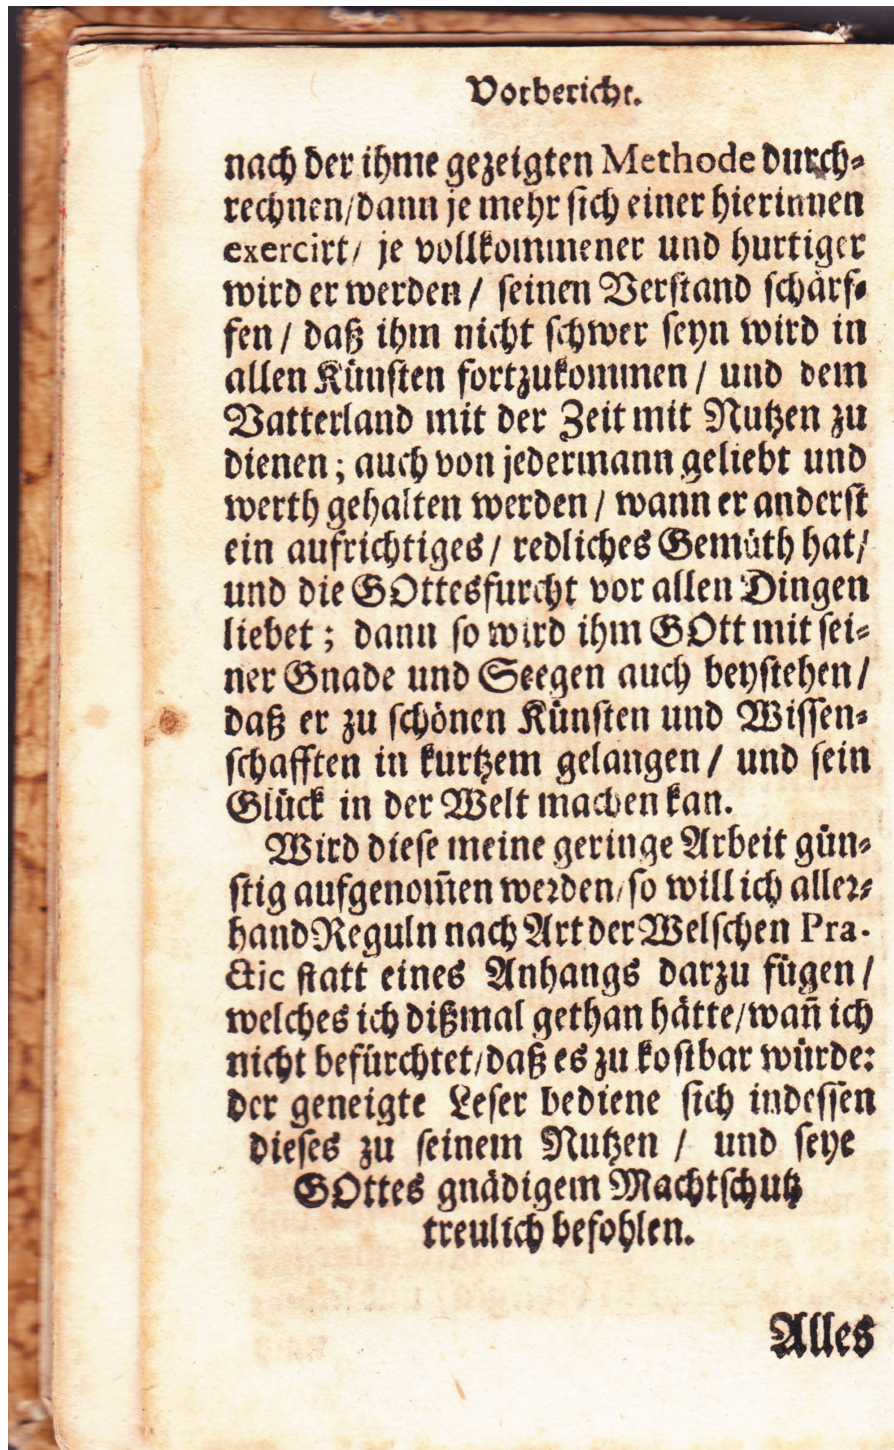 Vorbericht.
nach der ihme gezeigten Methode durch⸗
rechnen/dann je mehr sich einer hierinnen
exercirt/ je vollkommener und hurtiger
wird er werden / seinen Verstand schärf⸗
fen / daß ihm nicht schwer seyn wird in
allen Künsten fortzukommen / und dem
Vatterland mit der Zeit mit Nutzen zu
dienen ; auch von jedermann geliebt und
werth gehalten werden / wann er anderst
ein aufrichtiges / redliches Gemüth hat/
und die GOttesfurcht vor allen Dingen
liebet ; dann so wird ihm GOtt mit sei⸗
ner Gnade und Seegen auch beystehen/
daß er zu schönen Künsten und Wissen⸗
schafften in kurtzem gelangen / und sein
Glück in der Welt machen kan.
Wird diese meine geringe Arbeit gün⸗
stig aufgenom̃en werden/so will ich aller⸗
hand Reguln nach Art der Welschen Pra-
ctic statt eines Anhangs darzu fügen/
welches ich dißmal gethan hätte/wañ ich
nicht befürchtet/daß es zu kostbar würde:
der geneigte Leser bediene sich indessen
dieses zu seinem Nutzen / und seye
GOttes gnädigem Machtschutz
treulich befohlen.
Alles